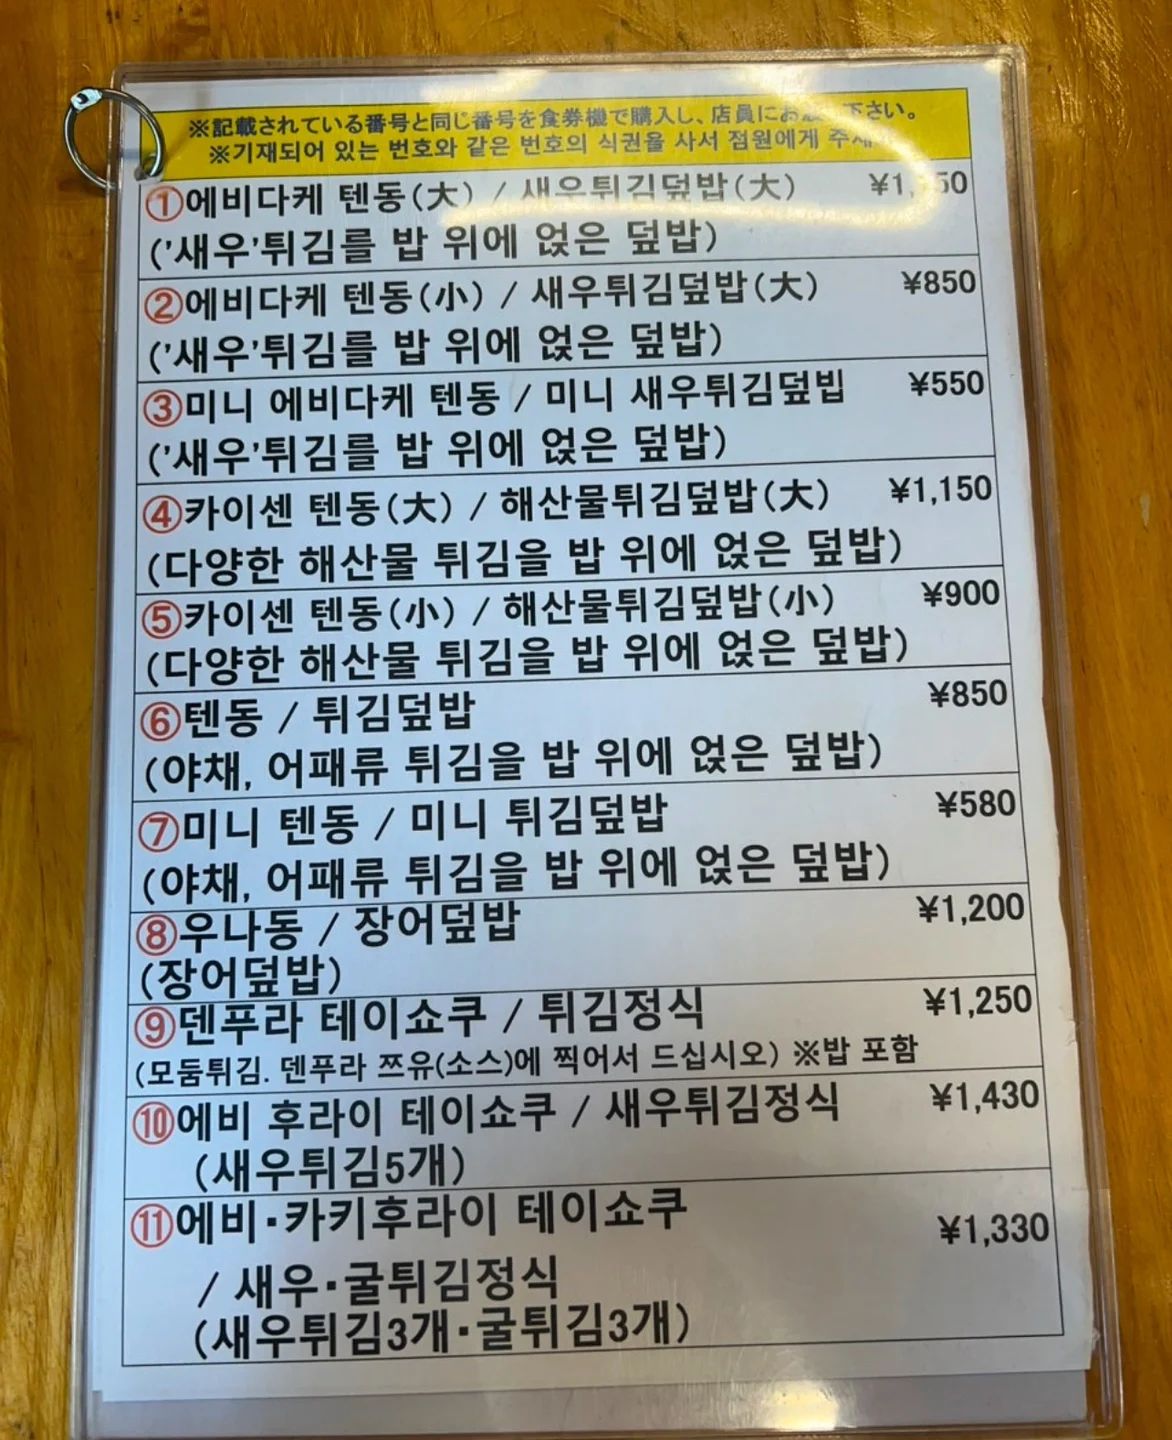 ※記載されている番号と同じ番号を食券機で購入し、店員にお 下さい。
※기재되어 있는 번호와 같은 번호의 식권을 사서 점원에게
①에비다케 텐동(大) / 새우튀김덮밥(大)
('새우'튀김를 밥 위에 얹은 덮밥)
②에비다케 텐동(小) / 새우튀김덮밥(大) ¥850
('새우'튀김를 밥 위에 얹은 덮밥)
③미니 에비다케 텐동 / 미니 새우튀김덮빕 ¥550
('새우'튀김를 밥 위에 얹은 덮밥)
④카이센 텐동(大) / 해산물튀김덮밥(大) ¥1,150
(다양한 해산물 튀김을 밥 위에 얹은 덮밥)
⑤카이센 텐동(小) / 해산물튀김덮밥(小) ¥900
(다양한 해산물 튀김을 밥 위에 얹은 덮밥)
⑥텐동 / 튀김덮밥 ¥850
(야채, 어패류 튀김을 밥 위에 얹은 덮밥)
⑦미니 텐동 / 미니 튀김덮밥 ¥580
(야채, 어패류 튀김을 밥 위에 얹은 덮밥)
⑧우나동 / 장어덮밥 ¥1,200
(장어덮밥)
⑨덴푸라 테이쇼쿠 / 튀김정식 ¥1,250
(모둠튀김. 덴푸라 쯔유(소스)에 찍어서 드십시오) ※밥 포함
⑩에비 후라이 테이쇼쿠 / 새우튀김정식 ¥1,430
(새우튀김5개)
⑪에비·카키후라이 테이쇼쿠 ¥1,330
/ 새우·굴튀김정식
(새우튀김3개·굴튀김3개)